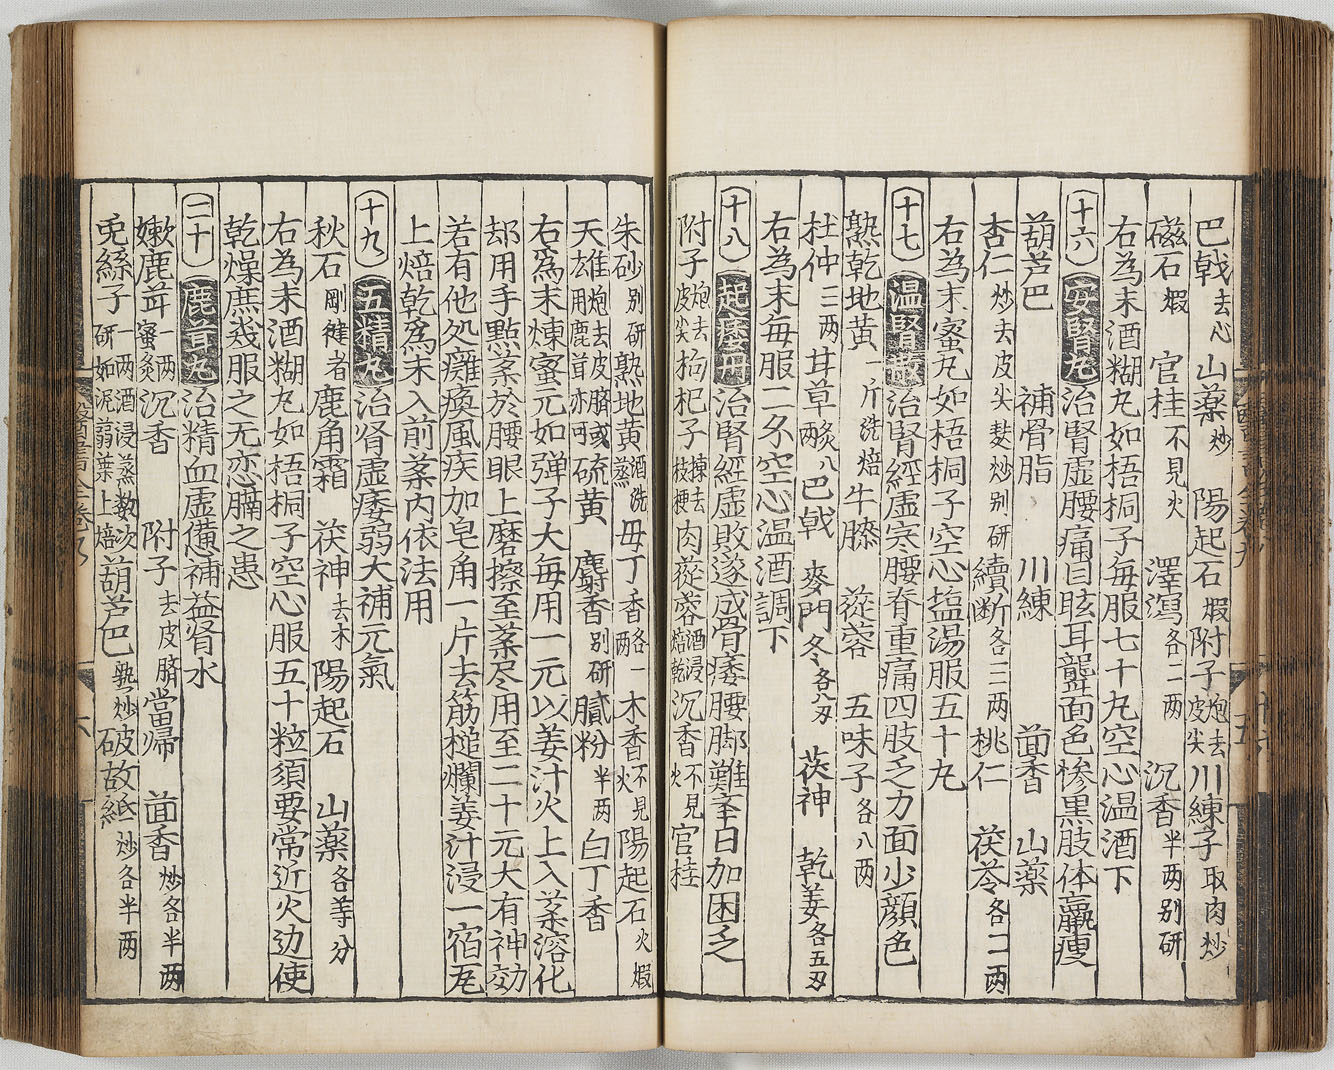 巴戟去心 山薬炒 陽起石煆附子炮去皮尖川練子取肉炒
磁石煆 官桂不見火 澤瀉各二两 沉香半两别研
右為末酒糊丸如梧桐子毎服七十丸空心温酒下
十六 安腎丸 治腎虚腰痛目眩耳聾面色惨黒肢体羸痩
葫芦巴 補骨脂 川練 茴香 山薬
杏仁炒去皮尖麸炒别研 續断各三两 桃仁 茯苓各二两
右為末蜜丸如梧桐子空心塩湯服五十丸
十七 温腎散 治腎經虚寒腰脊重痛四肢乏力面少顔色
熟乾地黄一斤洗焙 牛膝 蓯蓉 五味子各八两
杜仲三两 甘草炙八两 巴戟 麥門冬各 茯神 乾姜各五
右為末毎服二 空心温酒調下
十八 起痿丹 治腎經虚敗遂成骨痿腰脚難 日加困乏
附子炮去皮尖 枸杞子揀去枝梗 肉蓯蓉酒浸焙乾 沉香不見火 官桂
朱砂别研 熟地黄酒洗蒸 母丁香各一两 木香不見火 陽起石火煆
天雄炮去皮臍用鹿茸亦可 硫黄 麝香别研 膩粉半两 白丁香
右爲末煉蜜元如弾子大毎用一元以姜汁火上入薬溶化
却用手點薬於腰眼上磨擦至薬尽用至二十元大有神効
若有他処癱瘓風疾加皂角一片去筋槌爛姜汁浸一宿
上焙乾爲末入前薬内依法用
十九 五精丸 治腎虚痿弱大補元氣
秋石剛健者 鹿角霜 茯神去木 陽起石 山薬各等分
右為末酒糊丸如梧桐子空心服五十粒須要常近火边使
乾燥庶幾服之无恋膈之患
二十 鹿茸丸 治精血虚憊補益腎水
嫰鹿茸一两蜜炙 沉香 附子去皮臍 當帰 茴香炒各半两
兎絲子一两酒浸蒸数次研如泥 上焙 葫芦巴熟炒 破故紙炒各半两